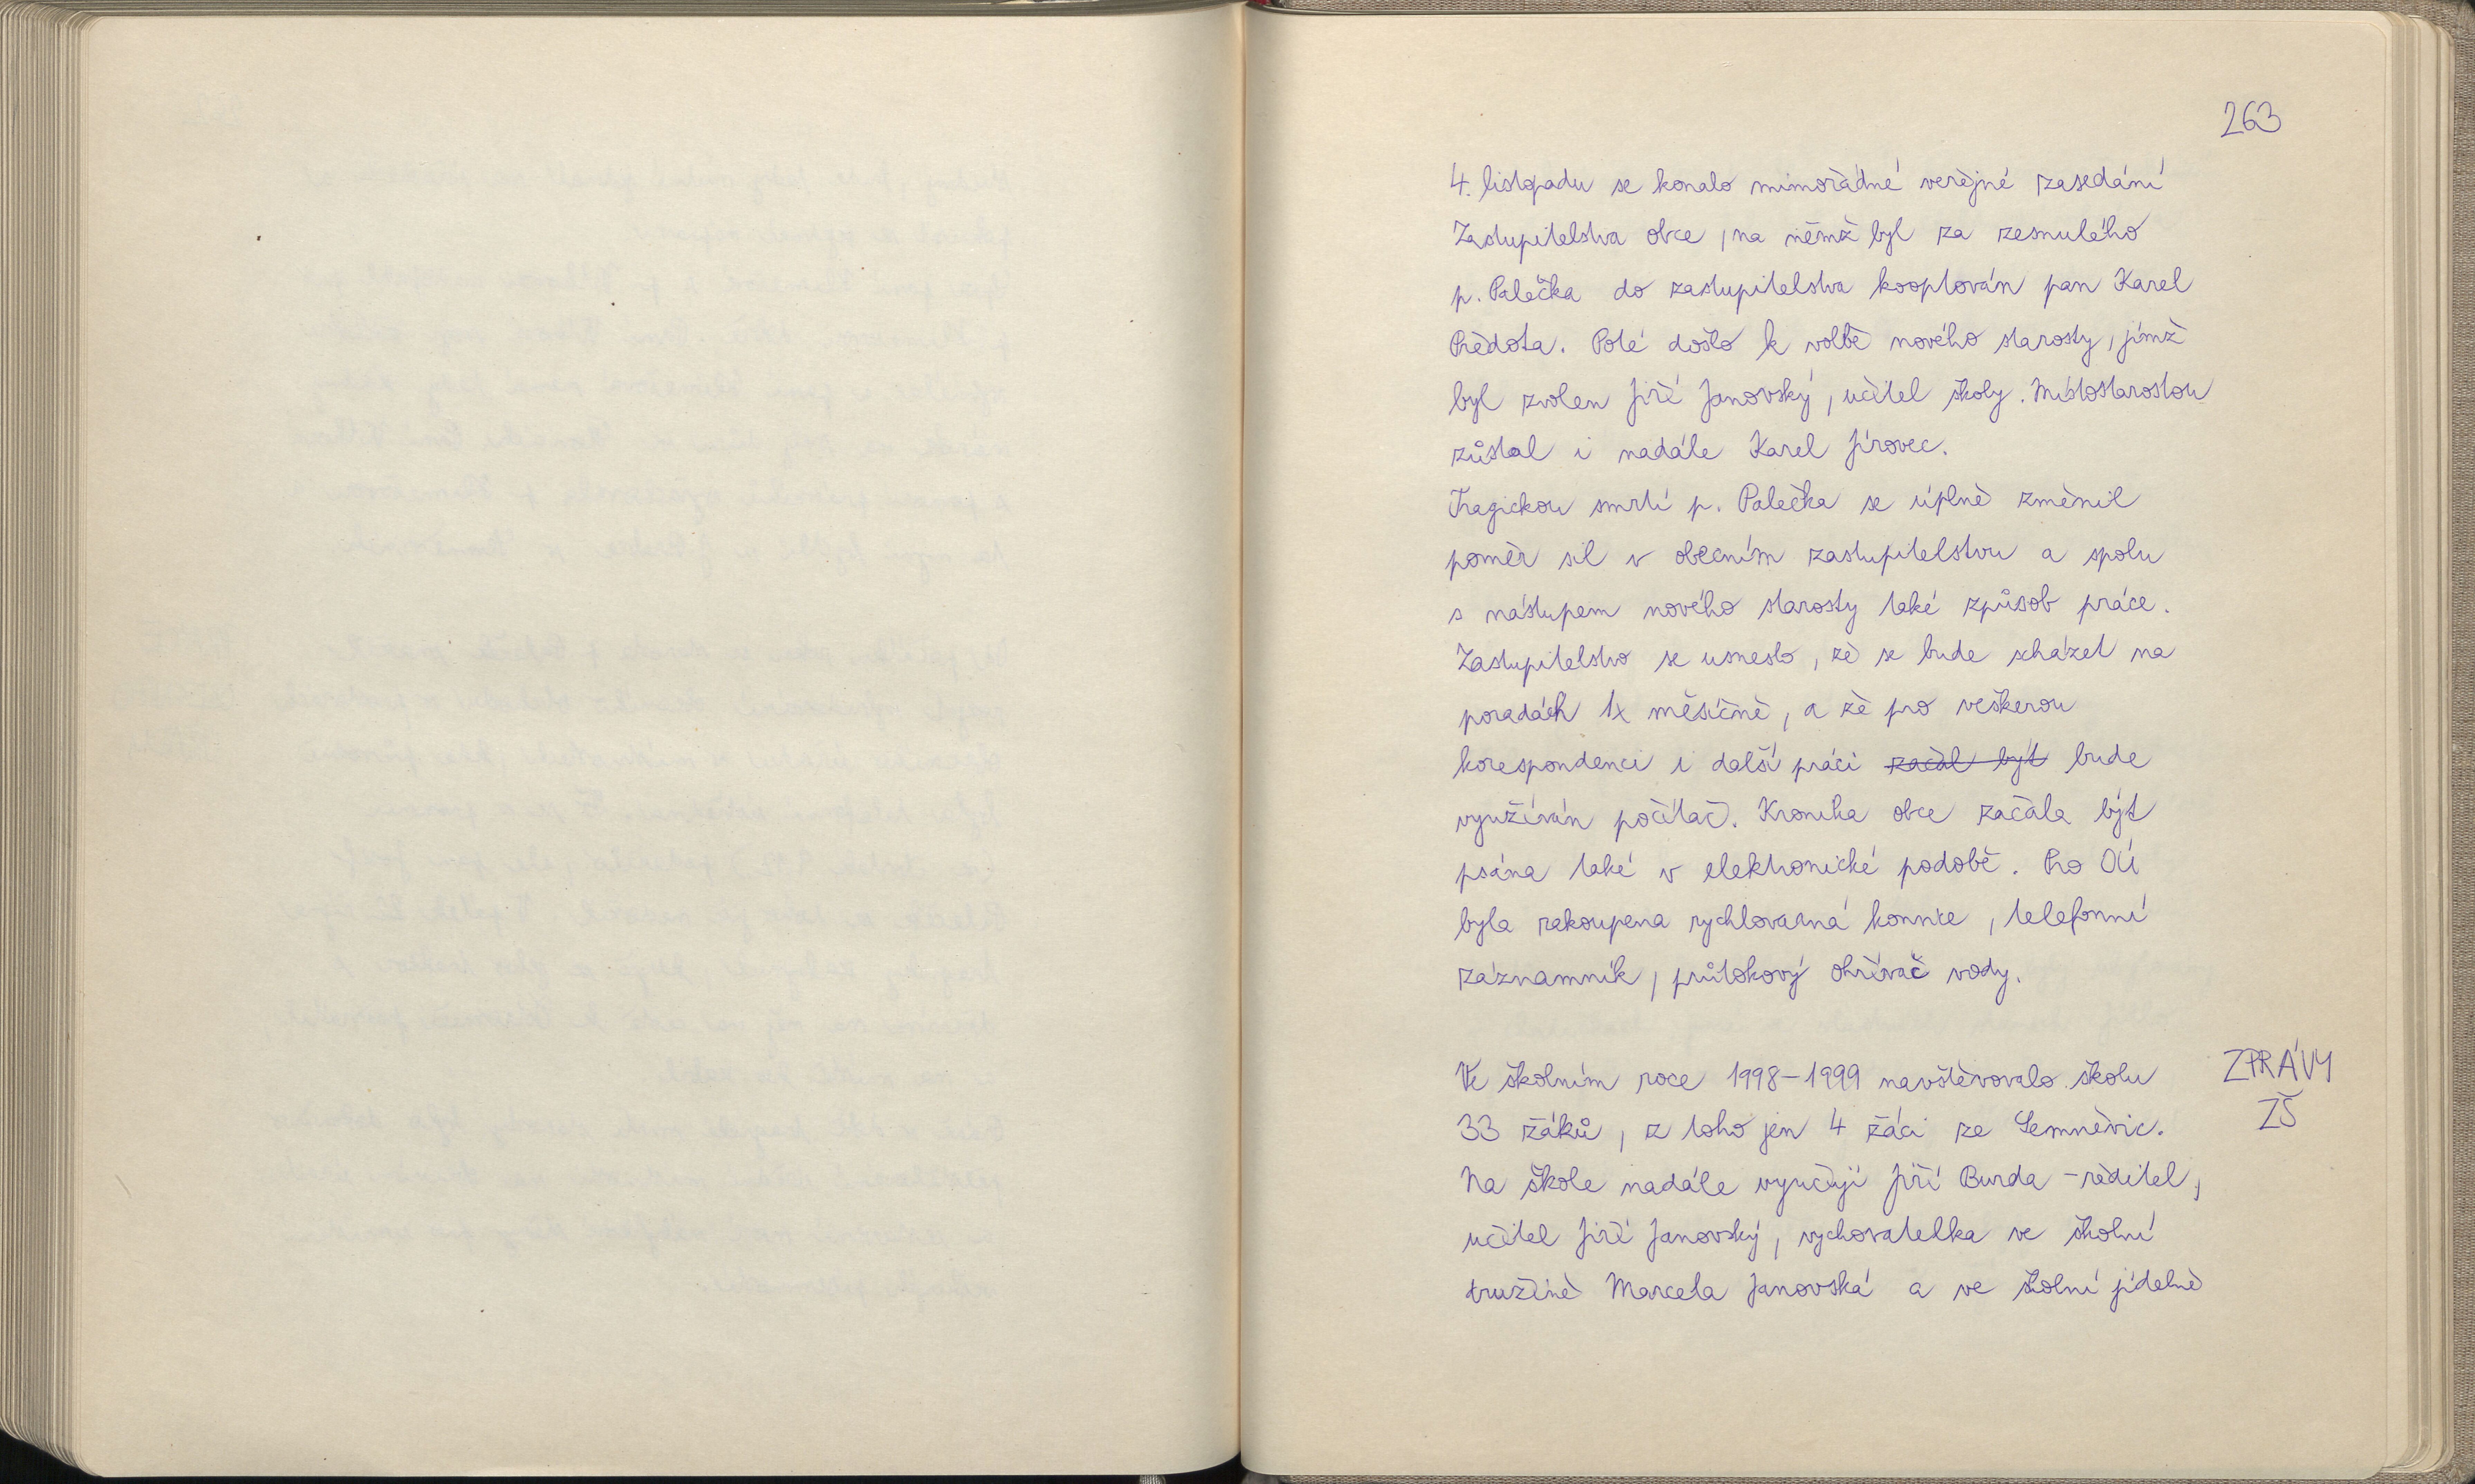 263
4. listopadu se konalo mimořádné veřejné zasedání
Zastupitelstva obce, na němž byl za zesnulého
p. Palečka do zastupitelstva kooptován pan Karel
Předota. Poté došlo k volbě nového starosty, jímž
byl zvolen Jiří Janovský, učitel školy. Místostarostou
zůstal i nadále Karel Jírovec.
Tragickou smrtí p. Palečka se úplně změnil
poměr sil v obecním zastupitelstvu a spolu
s nástupem nového starosty také způsob práce.
Zastupitelstvo se usneslo, že se bude scházet na
poradách 1x měsíčně, a že pro veškerou
korespondenci i další práci začal být bude
využíván počítač. Kronika obce začala být
psána také v elektronické podobě. Pro OÚ
byla zakoupena rychlovarná konvice, telefonní
záznamník, průtokový ohřívač vody.
Ve školním roce 1998-1999 navštěvovalo školu ZPRÁVY
33 žáků, z toho jen 4 žáci ze Semněvic. ZŠ
Na škole nadále vyučují Jiří Burda - ředitel,
učitel Jiří Janovský, vychovatelka ve školní
družině Marcela Janovská a ve školní jídelně